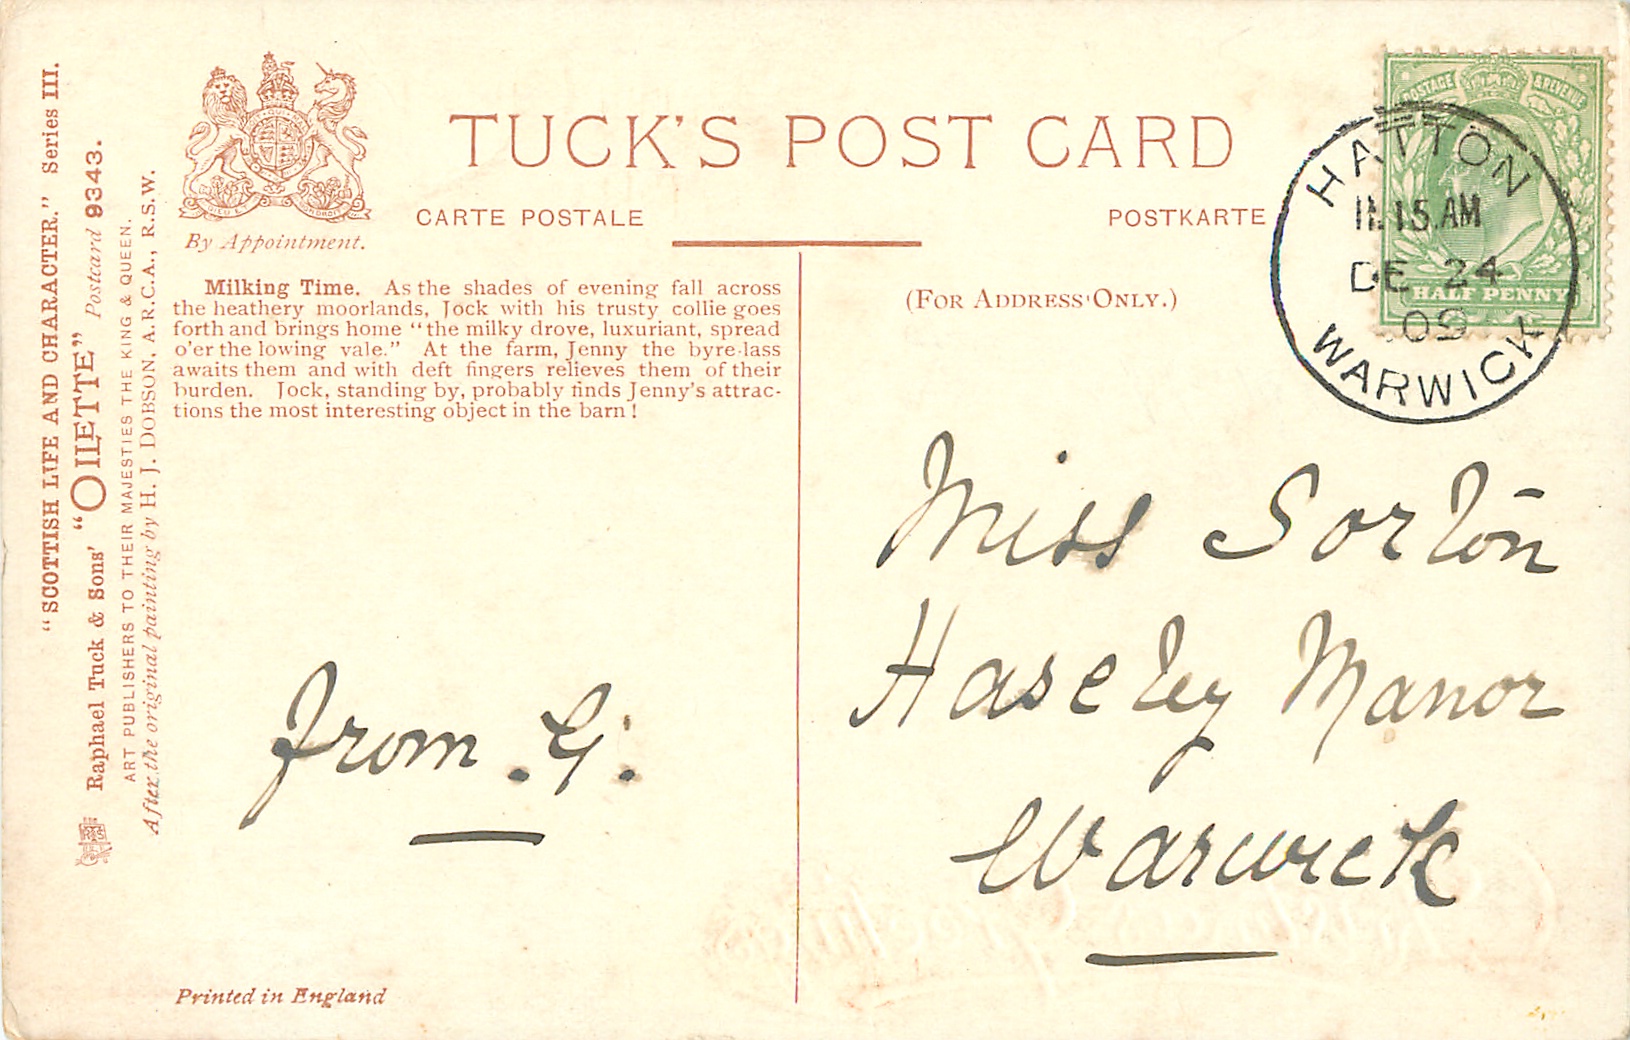 "SCOTTISH LIFE AND CHARACTER." Series III.
Raphael Tuck & Sons' "OILETTE" Postcard 9343.
ART PUBLISHERS TO THEIR MAJESTIES THE KING & QUEEN.
After the original painting by H. J. DOBSON, A.R.C.A., R.S.W.
By Appointment.
TUCK'S POST CARD
CARTE POSTALE
POSTKARTE
Milking Time. As the shades of evening fall across
the heathery moorlands, Jock with his trusty collie goes
forth and brings home "the milky drove, luxuriant, spread
o'er the lowing vale." At the farm, Jenny the byre-lass
awaits them and with deft fingers relieves them of their
burden. Jock, standing by, probably finds Jenny's attrac-
tions the most interesting object in the barn!
(FOR ADDRESS ONLY.)
POSTAGE & REVENUE
HALF PENNY
HATTON
11.15.AM
DE 24
09
WARWICK
from .G.
Miss Sorton
Haseley Manor
Warwick
Christmas Greetings
Printed in England